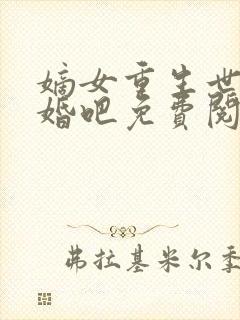 嫡女重生世
婚吧免費閱
弗拉基米尔季